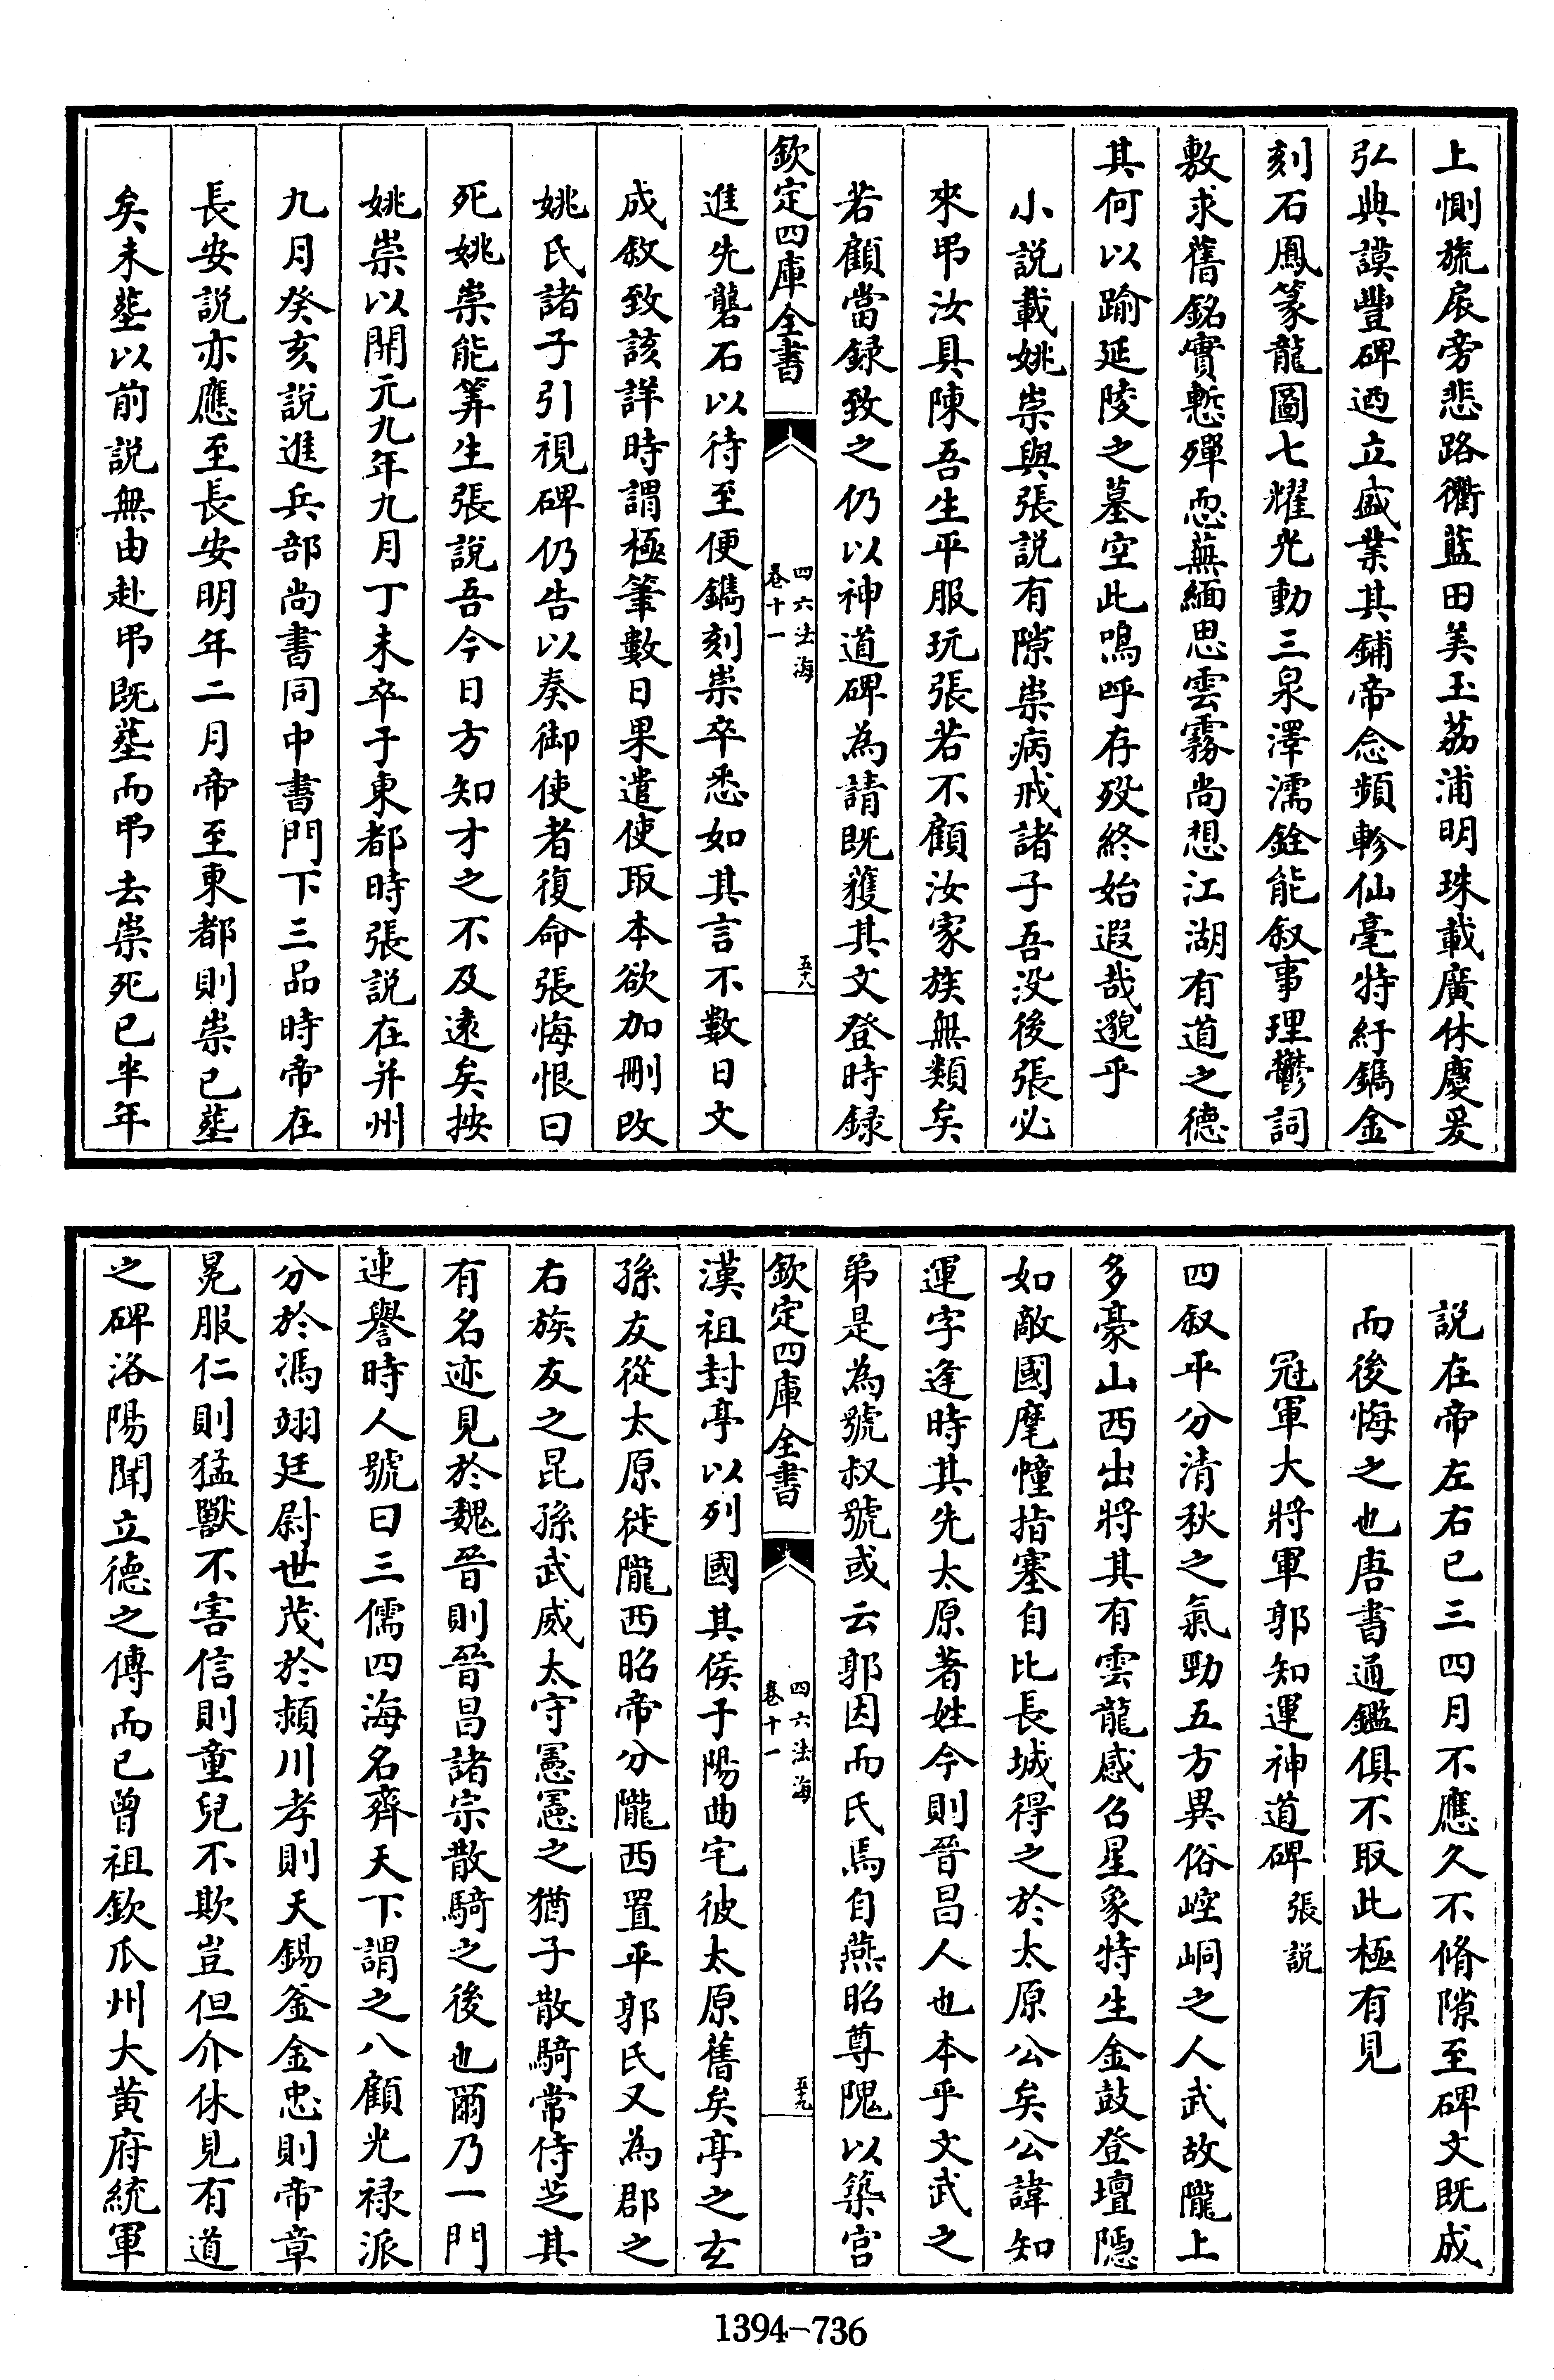 上惻旒扆旁悲路衢藍田美玉荔浦明珠載廣休慶爰
弘典謨豐碑迺立盛業其鋪帝念頻軫仙毫特紆鐫金
刻石鳳篆龍圖七耀光動三泉澤濡銓能叙事理鬱詞
敷求舊銘實慙殫恧蕪緬思雲霧尚想江湖有道之德
其何以踰延陵之墓空此嗚呼存殁終始遐哉邈乎
小説載姚崇與張説有隙崇病戒諸子吾没後張必
來弔汝具陳吾生平服玩張若不顧汝家族無類矣
若顧當録致之仍以神道碑為請既獲其文登時録
欽定四庫全書
四六法海
卷十一
五十八
進先礱石以待至便鐫刻崇卒悉如其言不數日文
成敘致該詳時謂極筆數日果遣使取本欲加刪改
姚氏諸子引視碑仍告以奏御使者復命張悔恨曰
死姚崇能筭生張說吾今日方知才之不及遠矣按
姚崇以開元九年九月丁未卒于東都時張説在并州
九月癸亥說進兵部尚書同中書門下三品時帝在
長安説亦應至長安明年二月帝至東都則崇已塟
矣未塟以前説無由赴弔既塟而弔去崇死已半年
説在帝左右已三四月不應久不脩隙至碑文既成
而後悔之也唐書通鑑俱不取此極有見
冠軍大將軍郭知運神道碑 張説
四叙平分清秋之氣勁五方異俗崆峒之人武故隴上
多豪山西出將其有雲龍感召星象特生金鼓登壇隱
如敵國麾幢指塞自比長城得之於太原公矣公諱知
運字逢時其先太原著姓今則晉昌人也本乎文武之
弟是為號叔號或云郭因而氏焉自燕昭尊隗以築宫
欽定四庫全書
四六法海
卷十一
五十九
漢祖封亭以列國其侯于陽曲宅彼太原舊矣亭之玄
孫友從太原徙隴西昭帝分隴西置平郭氏又為郡之
右族友之昆孫武威太守憲憲之猶子散騎常侍芝其
有名迹見於魏晉則晉昌諸宗散騎之後也爾乃一門
連譽時人號曰三儒四海名齊天下謂之八顧光禄派
分於馮翊廷尉世茂於潁川孝則天錫釜金忠則帝章
冕服仁則猛獸不害信則童兒不欺豈但介休見有道
之碑洛陽聞立德之傳而已曾祖欽瓜州大黄府統軍
1394-736